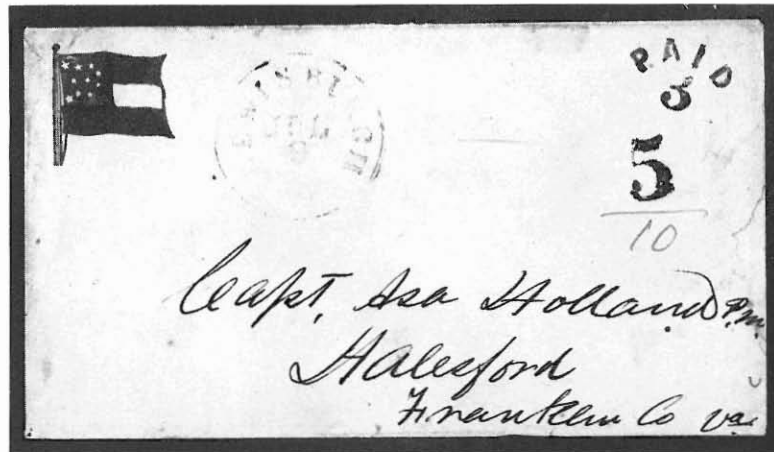 PAID
3
5
10
Capt. Asa Holland P.m.
Halesford
Franklin Co Va